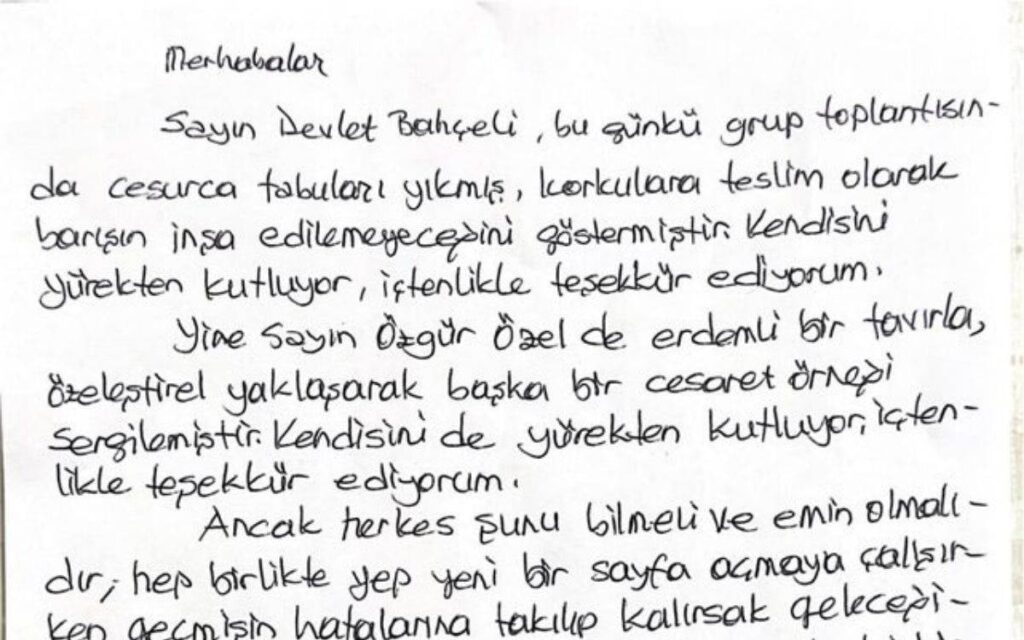 Merhabalar
Sayın Devlet Bahçeli, bu günkü grup toplantısın-
da cesurca tabuları yıkmış, korkulara teslim olarak
barışın inşa edilemeyeceğini göstermiştir. Kendisini
yürekten kutluyor, içtenlikle teşekkür ediyorum.
Yine Sayın Özgür Özel de erdemli bir tavırla,
özeleştirel yaklaşarak başka bir cesaret örneği
sergilemiştir. Kendisini de yürekten kutluyor, içten-
likle teşekkür ediyorum.
Ancak herkes şunu bilmeli ve emin olmalı-
dır; hep birlikte yep yeni bir sayfa açmaya çalışır-
ken geçmişin hatalarına takılıp kalırsak geleceği-